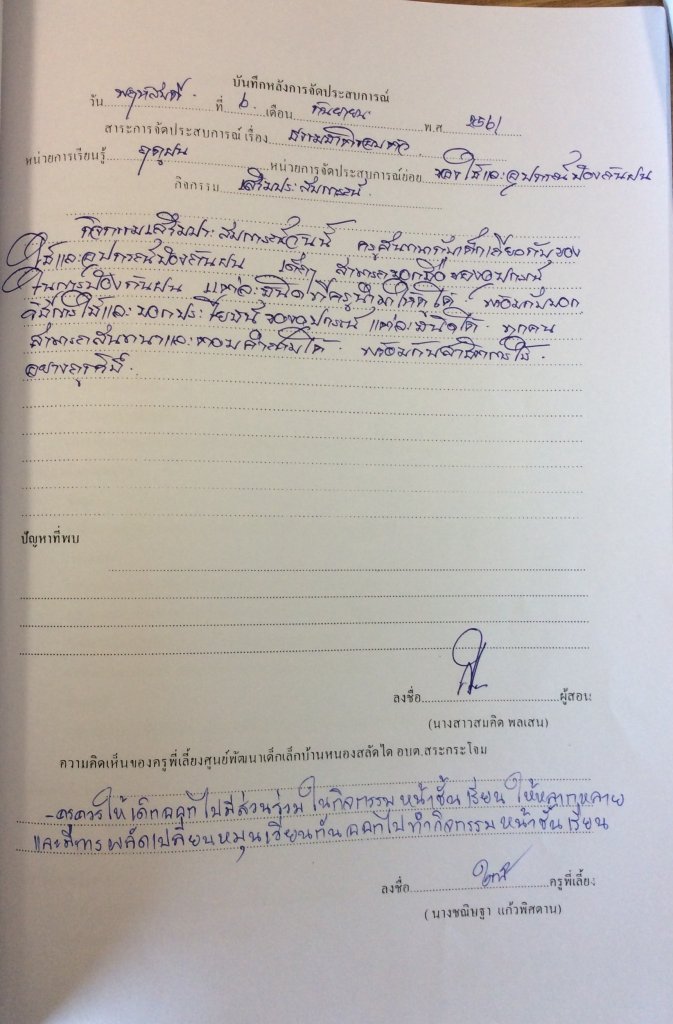 บันทึกหลังการจัดประสบการณ์
วัน พฤหัสบดี ที่ 6 เดือน กันยายน พ.ศ 2561
สาระการจัดประสบการณ์ เรื่อง ธรรมชาติรอบตัว
หน่วยการเรียนรู้ ฤดูฝน หน่วยการจัดประสบการณ์ย่อย ของใช้และอุปกรณ์ป้องกันฝน
กิจกรรม เสริมประสบการณ์
กิจกรรมเสริมประสบการณ์วันนี้ ครูสนทนากับเด็กเกี่ยวกับของ
ใช้และอุปกรณ์ป้องกันฝน เด็กๆ สามารถบอกชื่อของอุปกรณ์
ในการป้องกันฝน แต่ละชนิดที่ครูนำมาให้ดูได้ พร้อมกับบอก
วิธีการใช้และบอกประโยชน์ของอุปกรณ์แต่ละชนิดได้ ทุกคน
สามารถสนทนาและตอบคำถามได้ พร้อมกับสาธิตการใช้
อย่างถูกวิธี
ปัญหาที่พบ
ลงชื่อ ผู้สอน
(นางสาวสมคิด พลเสน)
ความคิดเห็นของครูพี่เลี้ยงศูนย์พัฒนาเด็กเล็กบ้านหนองสลัดได อบต.สระกระโจม
- ครูควรให้เด็กออกไปมีส่วนร่วมในกิจกรรมหน้าชั้นเรียน ให้หลากหลาย
และมีการผลัดเปลี่ยนหมุนเวียนกันออกไปทำกิจกรรมหน้าชั้นเรียน
ลงชื่อ ครูพี่เลี้ยง
( นางชณิษฐา แก้วพิศดาน)